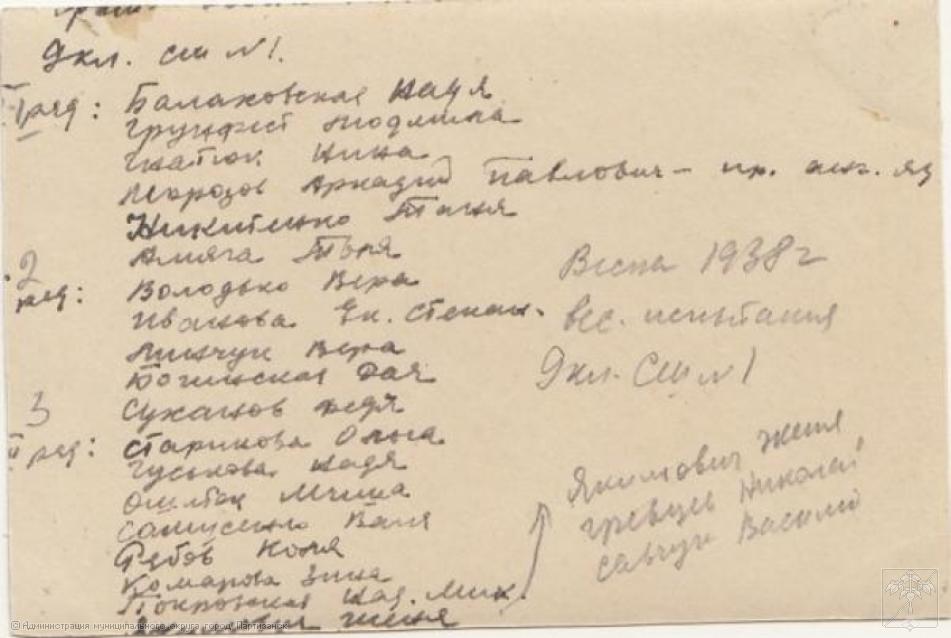 9 кл. СШ N1.
I ряд: Балаковская Надя
Грунфест Людмила
Гнатюк Нина
Морозов Аркадий Павлович – пр. анг. яз
Никитенко Таня
2 Амяга Толя
ряд: Володько Вера
Иванова Ек. Степан.
Пинчук Вера
Богинская Рая
3 Суханов Федя
II ряд: Старикова Ольга
Гуськова Надя
Миша
Самусенко Ваня
Рябов Коля
Комарова Зина
Покровская Кад. Мик.
Женя
Весна 1938 г
вес. испытания
9 кл. СШ N1
Якимович Женя
Гревцев Николай
Савчук Василий
© Администрация муниципального округа город Партизанск